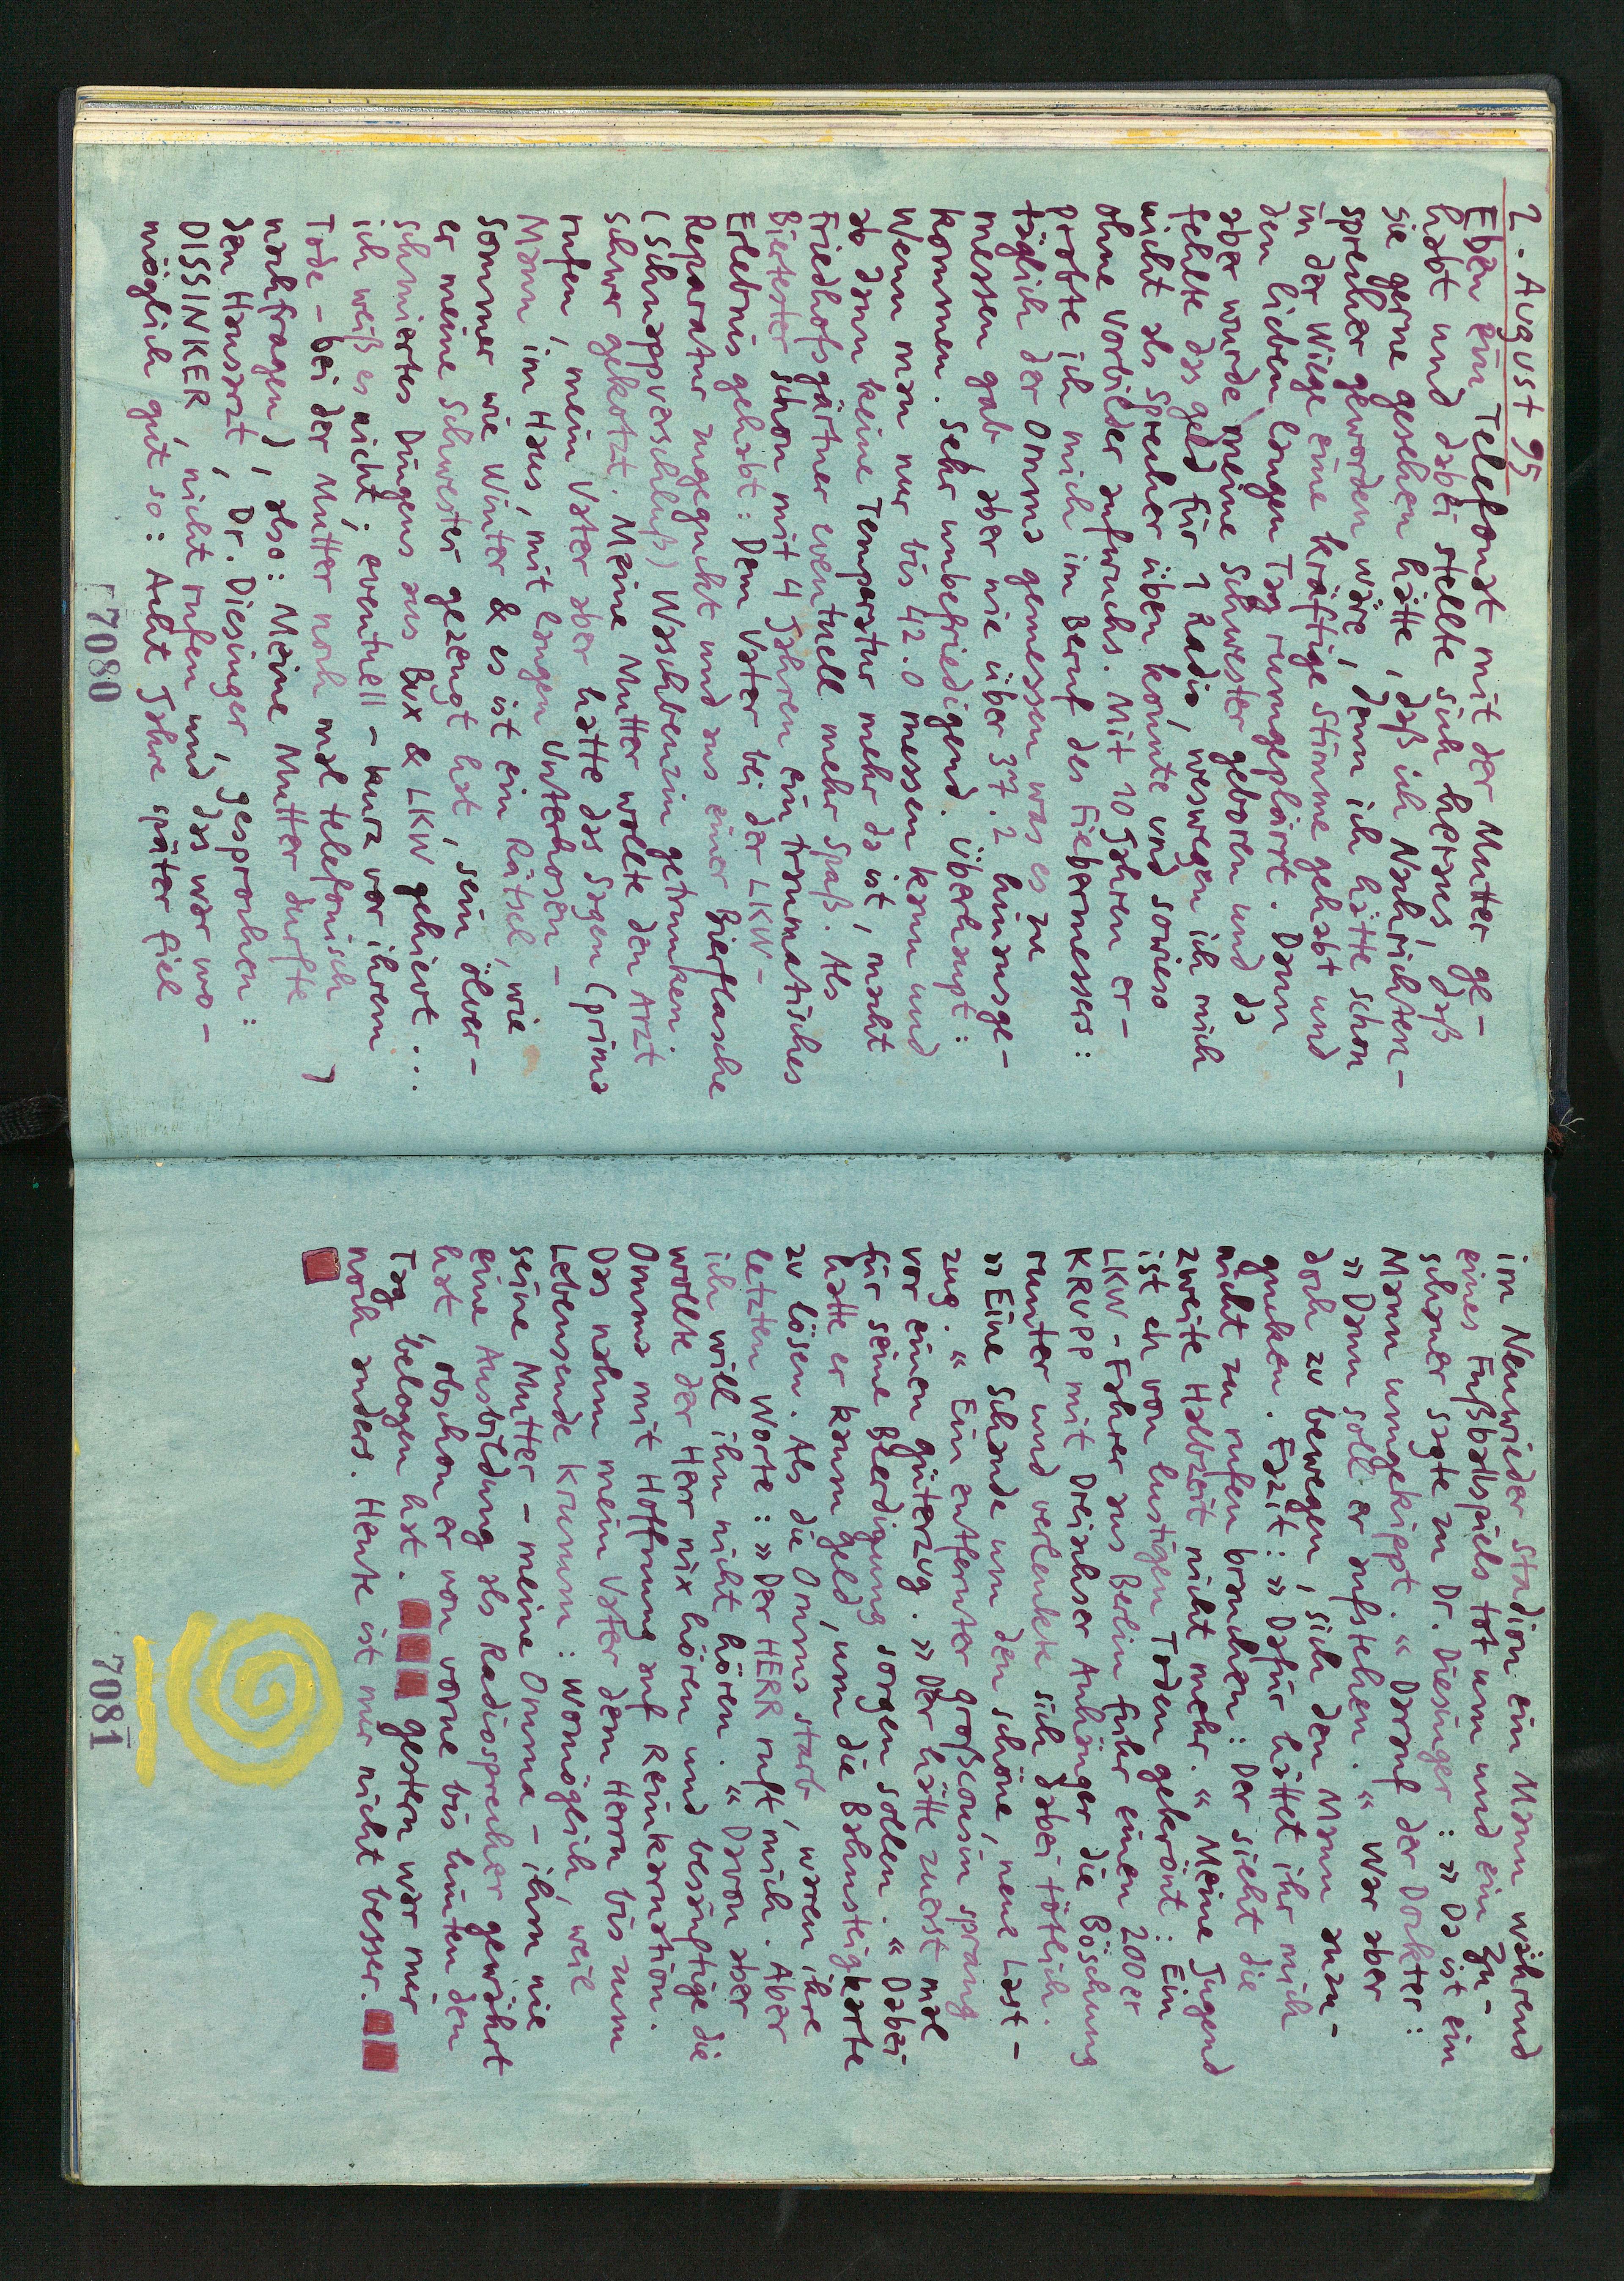 2. August 95
Eben ein Telefonat mit der Mutter ge-
habt und dabei stellte sich heraus, daß
sie gerne gesehen hätte, daß ich Nachrichten-
sprecher geworden wäre, denn ich hätte schon
in der Wiege eine kräftige Stimme gehabt und
den lieben langen Tag rumgeplärrt. Dann
aber wurde meine Schwester geboren und da
fehlte das Geld für 1 Radio, weswegen ich mich
nicht als Sprecher üben konnte und sowieso
ohne Vorbilder aufwuchs. Mit 10 Jahren er-
probte ich mich im Beruf des Fiebermessers:
täglich der Omma gemessen was es zu
messen gab aber nie über 37.2 hinausge-
kommen. Sehr unbefriedigend. Überhaupt:
Wenn man nur bis 42.0 messen kann und
ab dann keine Temperatur mehr da ist, macht
Friedhofsgärtner eventuell mehr Spaß. Als
Biertester schon mit 4 Jahren ein traumatisches
Erlebnis gehabt: Dem Vater bei der LKW-
Reparatur zugeguckt und aus einer Bierflasche
(Schnappverschluß) Waschbenzin getrunken.
Schwer gekotzt. Meine Mutter wollte den Arzt
rufen, mein Vater aber hatte das Sagen (prima
Mann im Haus, mit langen Unterhosen –
Sommer wie Winter & es ist ein Rätsel, wie
er meine Schwester gezeugt hat, sein ölver-
schmiertes Dingens aus Bux & LKW gehievt ...
ich weiß es nicht; eventuell – kurz vor ihrem
Tode – bei der Mutter noch mal telefonisch
nachfragen), also: Meine Mutter durfte
den Hausarzt, Dr. Diesinger, gesprochen:
DISSINKER, nicht rufen und das war wo-
möglich gut so: Acht Jahre später fiel
7080
im Neuwieder Stadion ein Mann während
eines Fußballspiels tot um und ein Zu-
schauer sagte zu Dr. Diesinger: »Da ist ein
Mann umgekippt.« Darauf der Dockter:
»Dann soll er aufstehen.« War aber
doch zu bewegen, sich den Mann anzu-
gucken. Fazit: »Dafür hättet ihr mich
nicht zu rufen brauchen: Der sieht die
zweite Halbzeit nicht mehr.« Meine Jugend
ist eh von lustigen Toden gekrönt: Ein
LKW-Fahrer aus Berlin fuhr einen 200er
KRUPP mit Dreiachser Anhänger die Böschung
runter und verlenkte sich dabei tötlich.
»Eine Schande um den schöne, neue Last-
zug.« Ein entfernter Großcousin sprang
vor einen Güterzug. »Der hätte zuerst mal
für seine Beerdigung sorgen sollen.« Dabei
hatte er kaum Geld, um die Bahnsteigkarte
zu lösen. Als die Omma starb, waren ihre
letzten Worte: »Der HERR ruft mich. Aber
ich will ihn nicht hören.« Davon aber
wollte der Herr nix hören und besänftigte die
Omma mit Hoffnung auf Reinkarnation.
Das nahm mein Vater dem Herrn bis zum
Lebensende krumm: Womöglich, weil
seine Mutter – meine Omma – ihm nie
eine Ausbildung als Radiosprecher gewährt
hat, obschon er von vorne bis hinten den
Tag belogen hat. gestern war mir
noch anders. Heute ist mir nicht besser.
7081